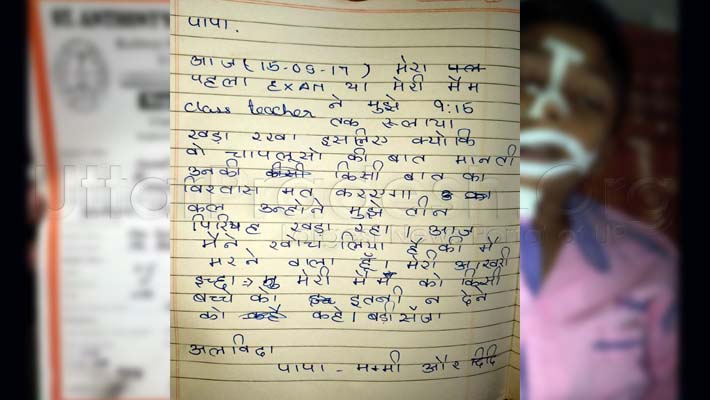 ST. ANTHONY'S
पापा.
आज (15-09-17) मेरा
पहला EXAM था मेरी मैम
class teacher ने मुझे 9:15
तक रूलाया
खड़ा रखा इसलिए क्योकि
वो चापलूसो की बात मानती
उनकी किसी बात का
विश्वास मत करएगा
कल उन्होने मुझे तीन
पिरियह खड़ा रखा। आज
मैंने सोच लिया है की मैं
मरने वाला हूँ। मेरी आखरी
इच्छा मेरी मैम को किसी
बच्चे को इतनी न देने
को कहे। बड़ी सजा
अलविदा
पापा - मम्मी और दिदि